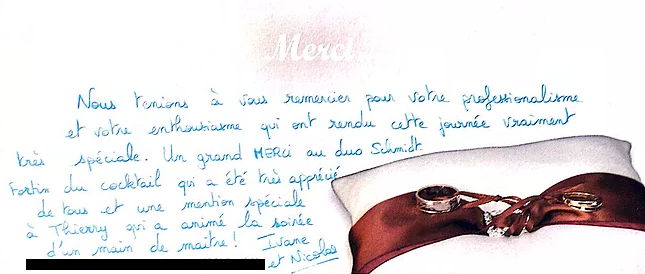 Merci
Nous tenions à vous remercier pour votre professionalisme
et votre enthousiasme qui ont rendu cette journée vraiment
très spéciale. Un grand MERCI au duo Schmidt
Fortin du cocktail qui a été très apprécié
de tous et une mention spéciale
à Thierry qui a animé la soirée
d'un main de maitre! Ivane
et Nicolas